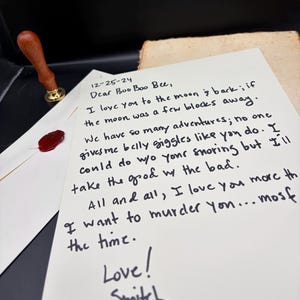 12-25-24
Dear Boo Boo Bee,
I love you to the moon & back; if
the moon was a few blocks away.
We have so many adventures; no one
gives me belly giggles like you do. I
could do w/o your snoring but I'll
take the good w/ the bad.
All and all, I love you more th
I want to murder you... most
the time.
Love!